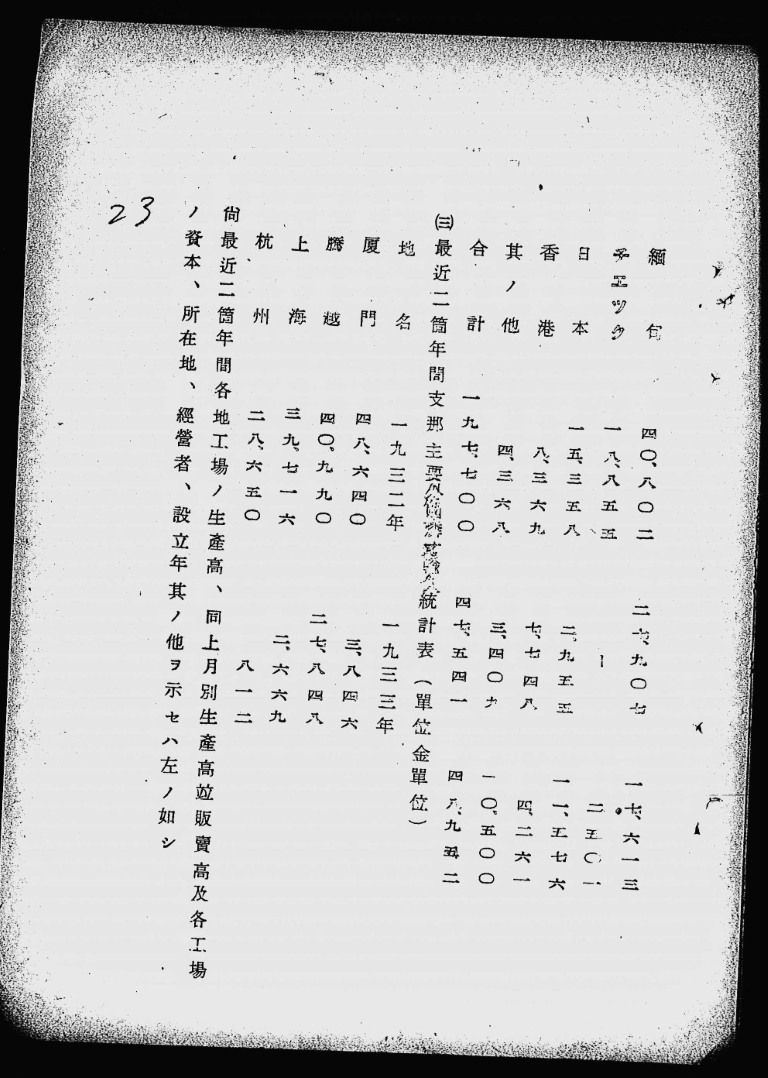 緬甸 四〇、八〇二 二七、九〇七 一七、六一三
チエツク 一八、八五五 ｜ 二五〇一
日本 一五、三五八 二、九五五 一一、五七六
香港 八、三六九 七、七四八 四、二六一
其ノ他 四、三六八 三、四〇九 一〇、五〇〇
合計 一九七、七〇〇 四七、五四一 四八、九五二
㈢最近二箇年間支那主要統計表（單位金單位）
地名 一九三二年 一九三三年
厦門 四八、六四〇 三、八四六
騰越 四〇、九九〇 二七、八四八
上海 三九、七一六 二、六六九
杭州 二八、六五〇 八一二
尙最近二箇年間各地工場ノ生產高、同上月別生產高竝販賣高及各工場
ノ資本、所在地、經營者、設立年其ノ他ヲ示セハ左ノ如シ
23